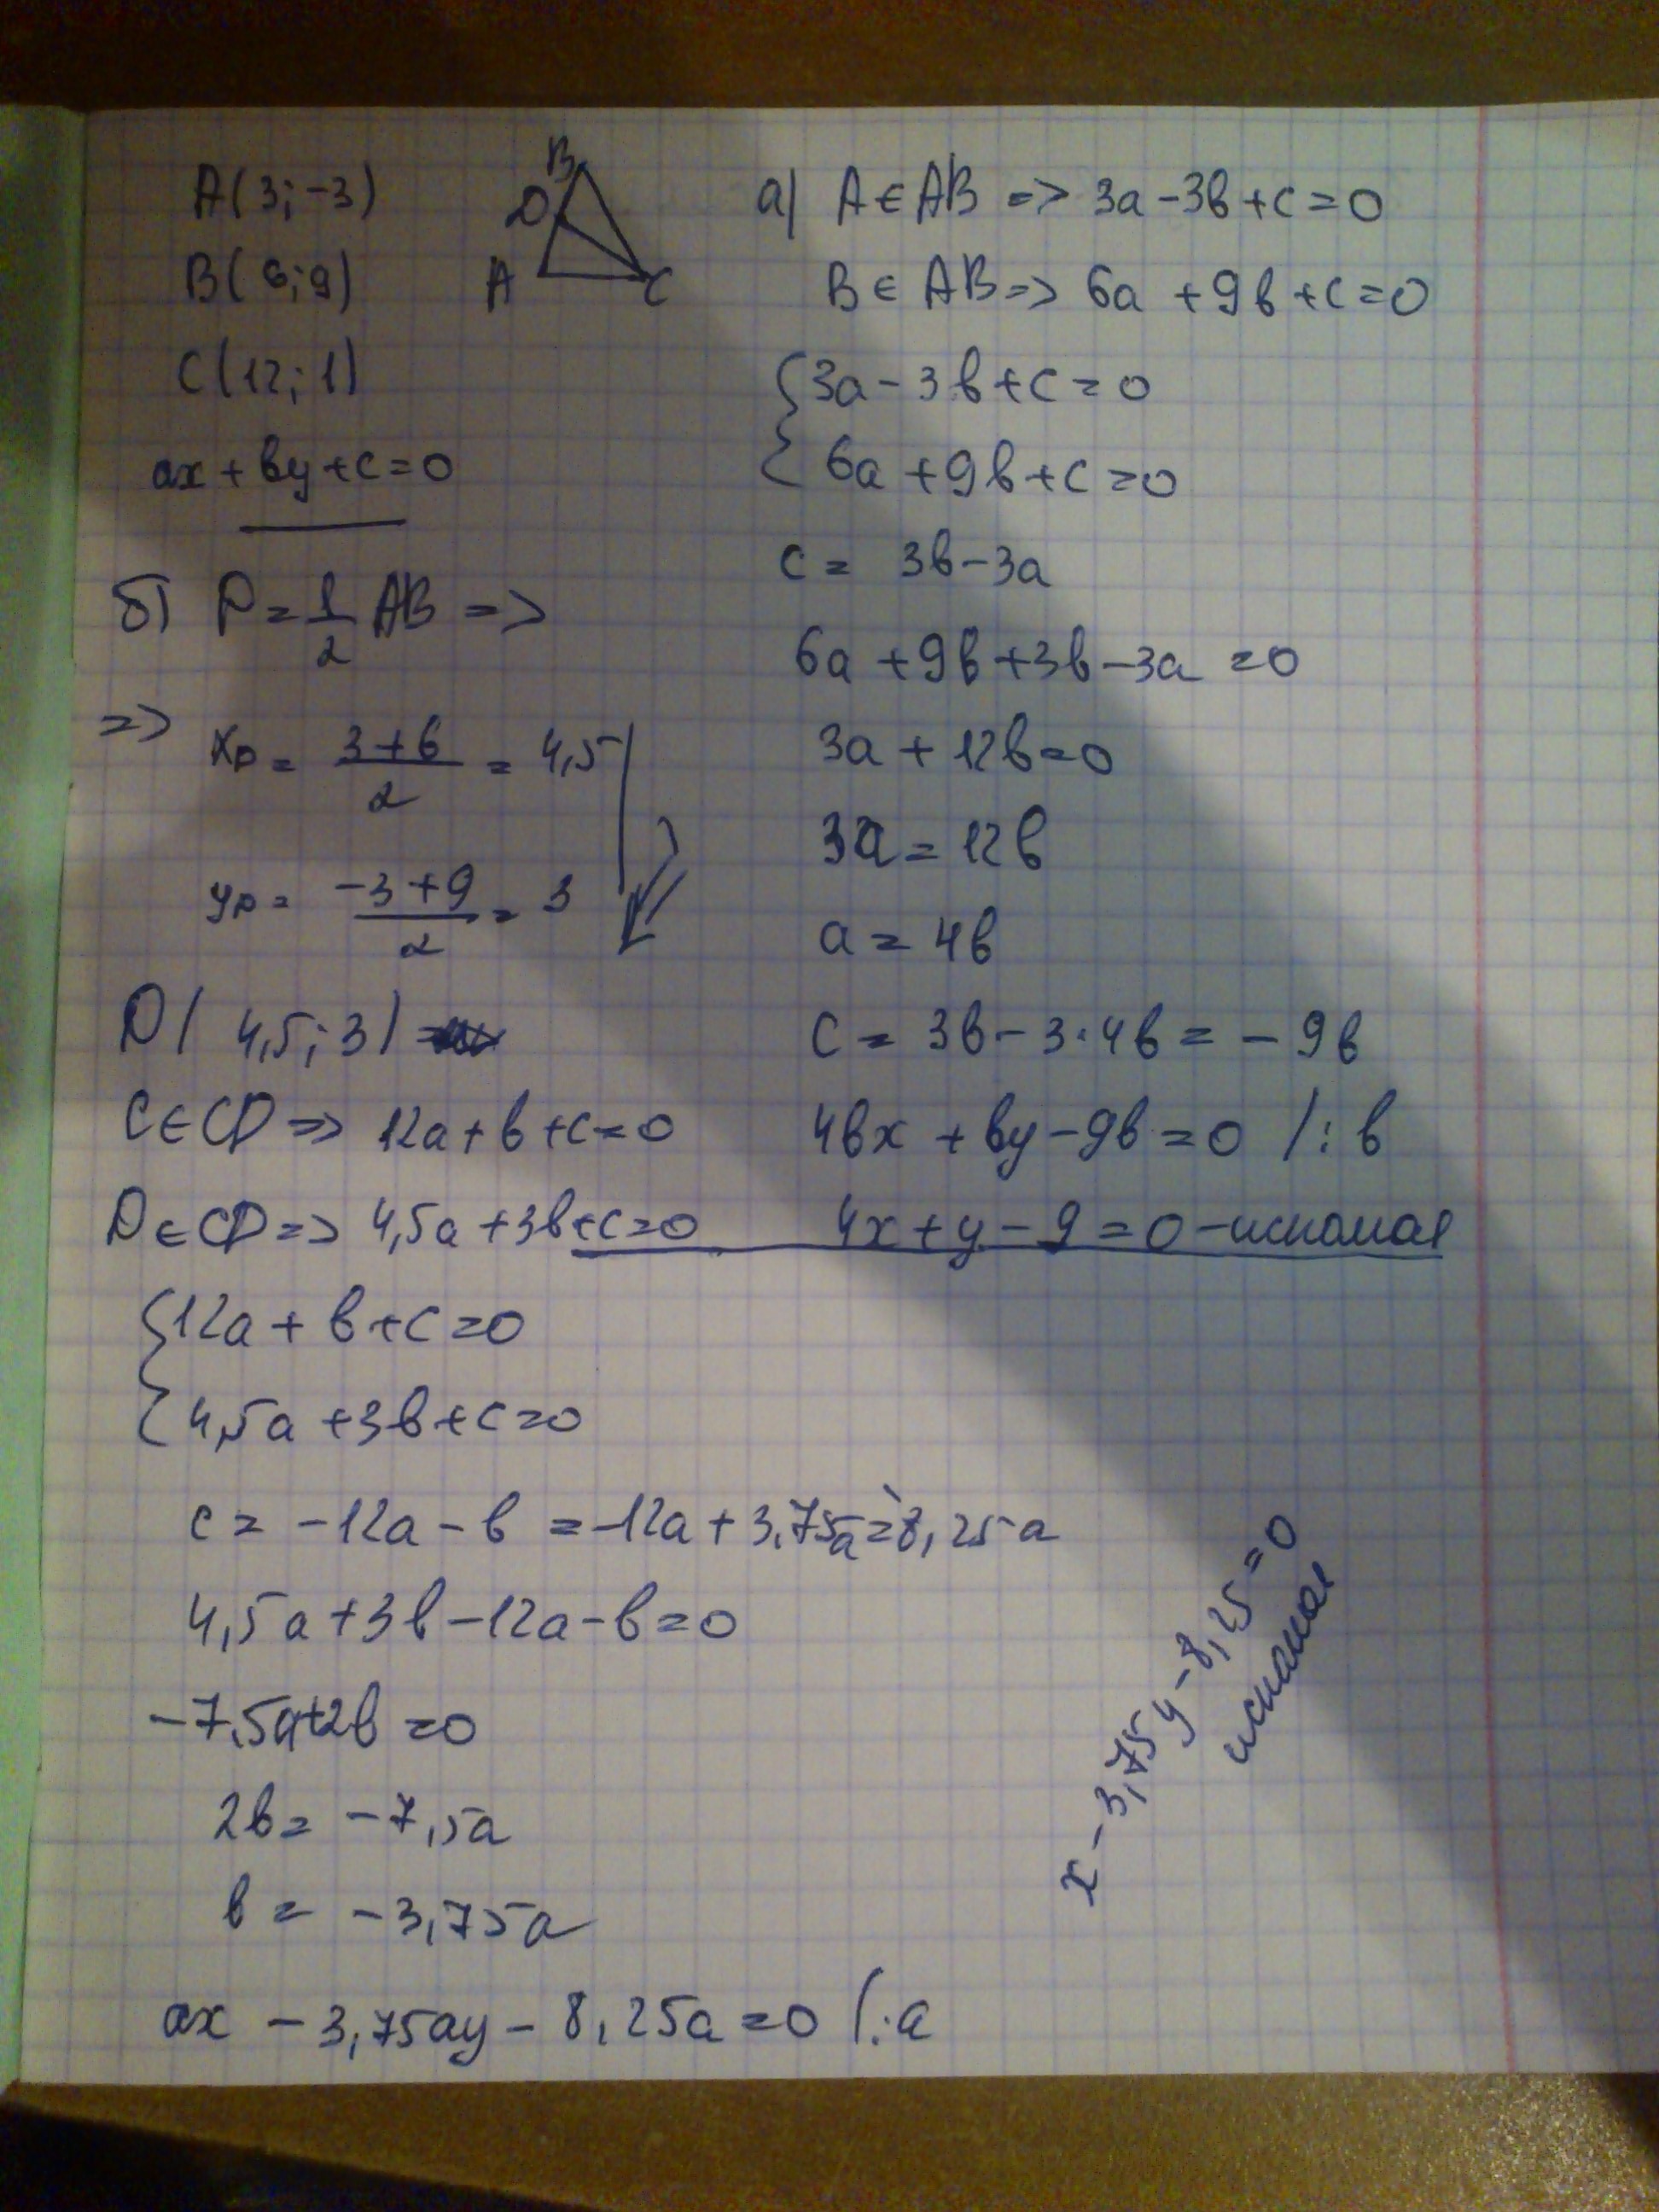 A(3;-3)
B(6;9)
C(12;1)
ax+by+c=0
B
D
A
C
а) A∈AB => 3a-3b+c=0
B∈AB=> 6a+9b+c=0
{3a-3b+c=0
{6a+9b+c=0
c = 3b-3a
6a+9b+3b-3a=0
3a+12b=0
3a=12b
a=4b
c = 3b-3·4b=-9b
4bx+by-9b=0 /:b
4x+y-9=0-искомая
б) D=1/2 AB =>
=> x_D = (3+6)/2 = 4,5
y_D = (-3+9)/2 = 3
D(4,5;3)
C∈CD=> 12a+b+c=0
D∈CD=> 4,5a+3b+c=0
{12a+b+c=0
{4,5a+3b+c=0
c = -12a-b = -12a+3,75a=8,25a
4,5a+3b-12a-b=0
-7,5a+2b=0
2b= -7,5a
b= -3,75a
ax-3,75ay-8,25a=0 /:a
x-3,75y-8,25=0
искомая